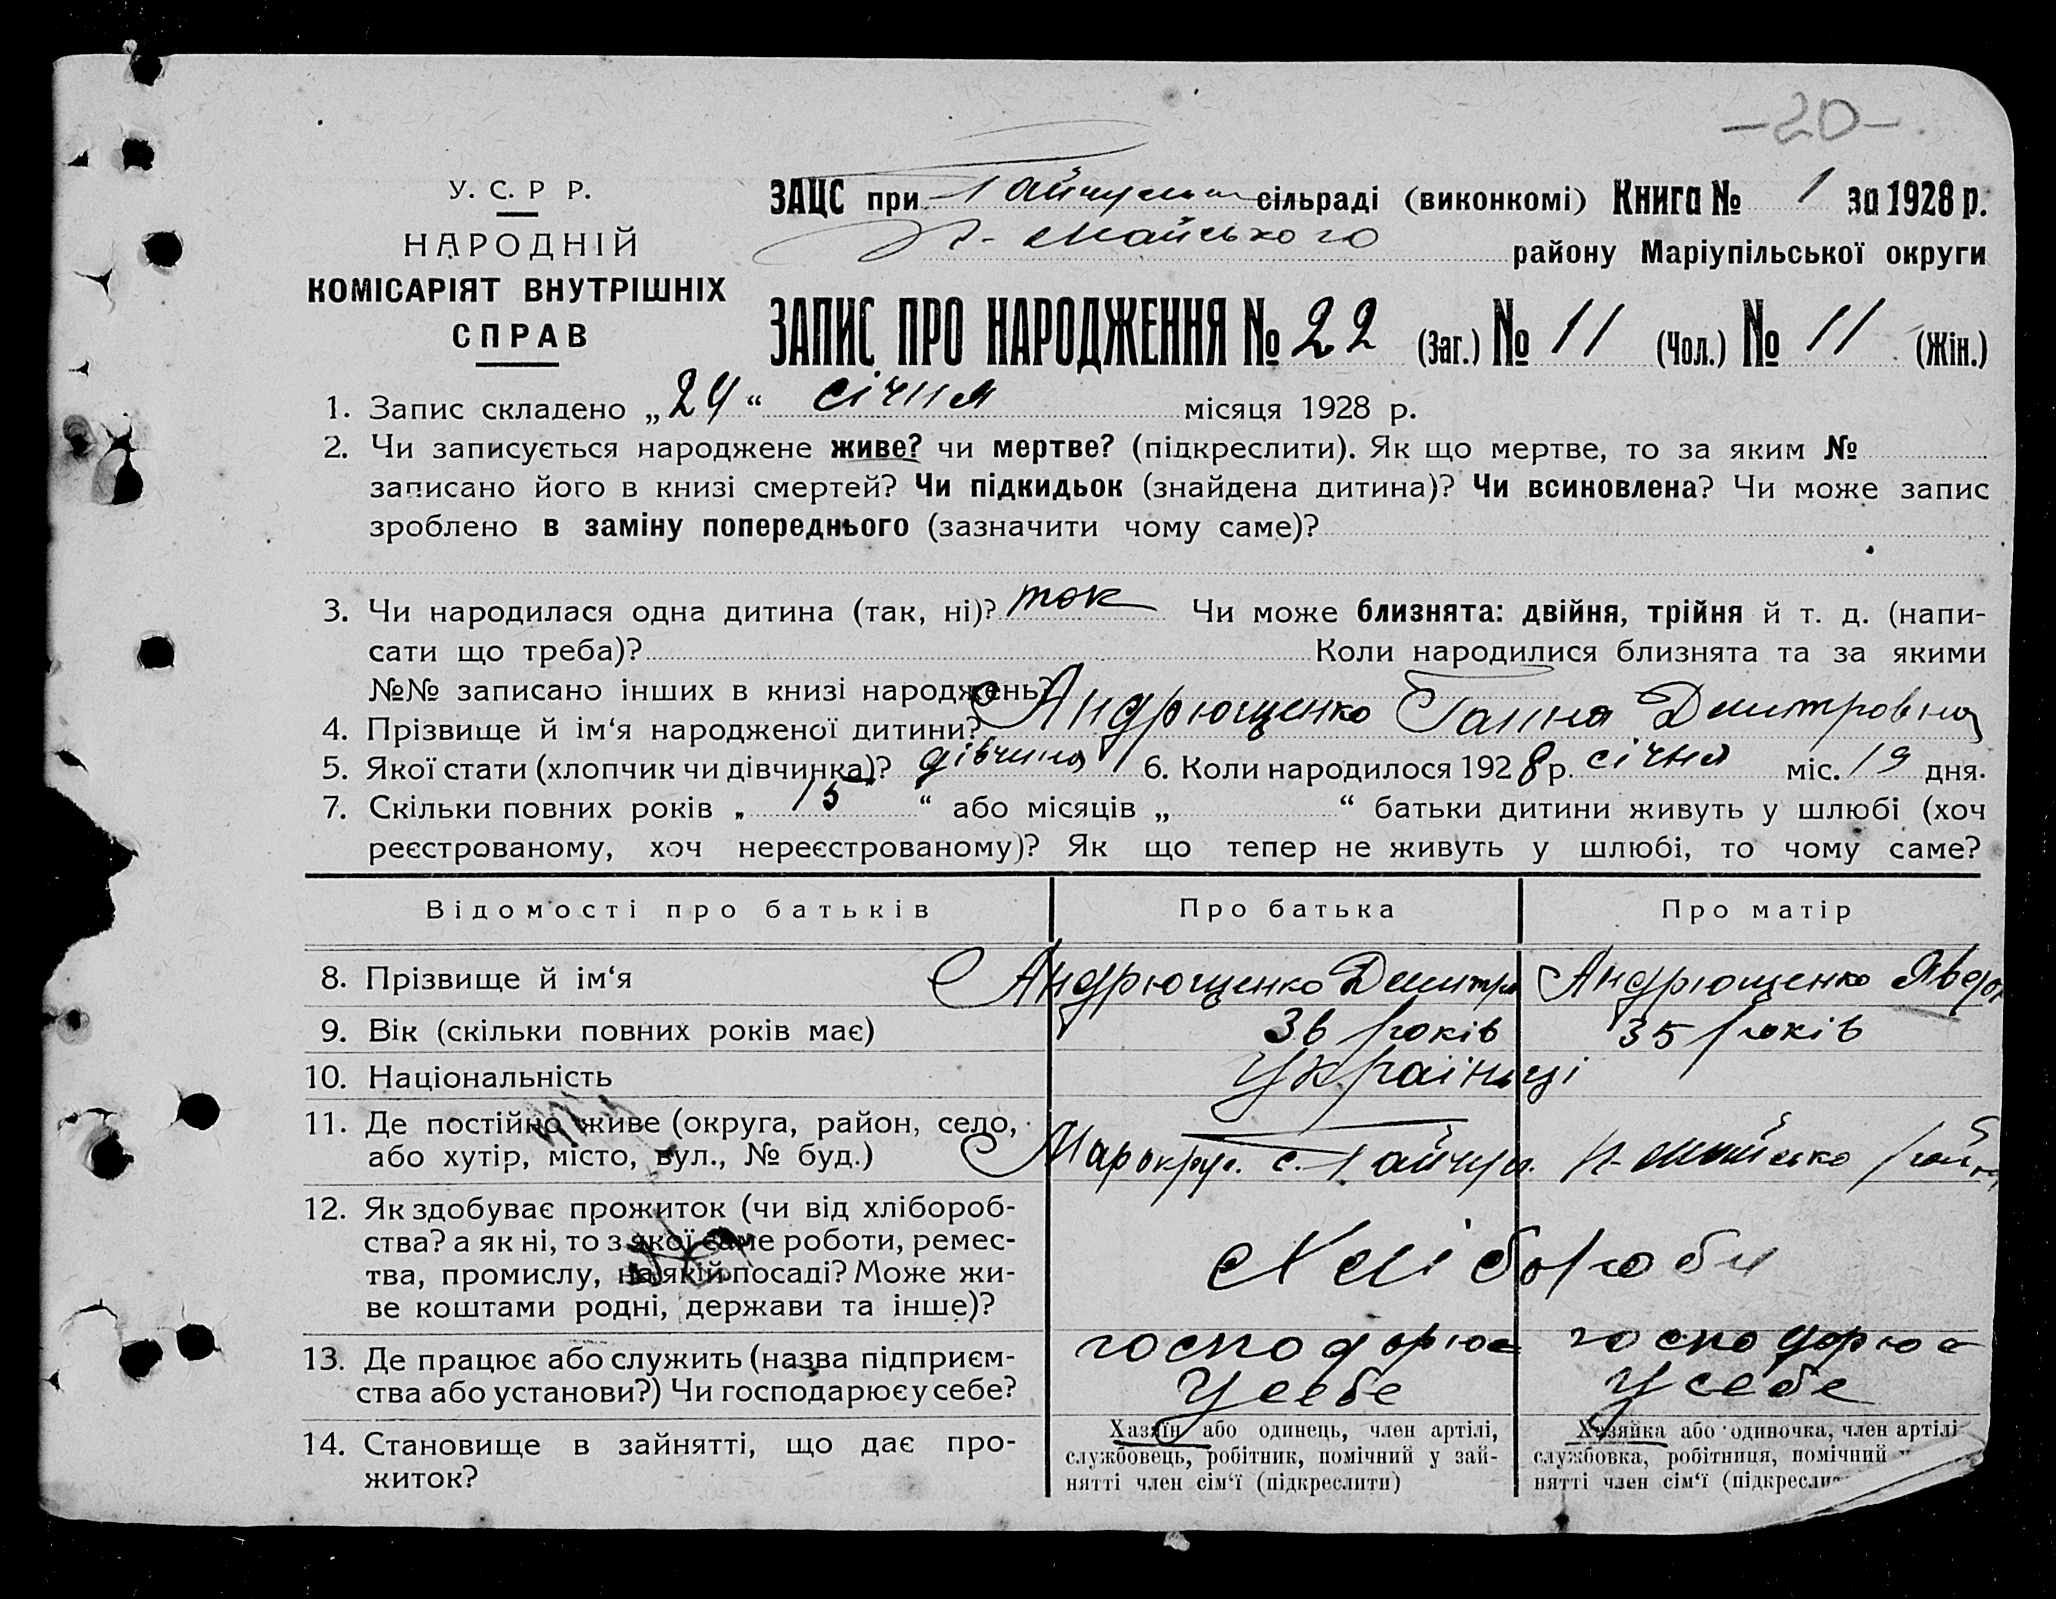 –20–
У. С. Р Р.
НАРОДНІЙ
КОМІСАРІЯТ ВНУТРІШНІХ
СПРАВ
ЗАЦС при Гайчульск сільраді (виконкомі) Книга № 1 за 1928 р.
П-Майського району Маріупільської округи
ЗАПИС ПРО НАРОДЖЕННЯ № 22 (Заг.) № 11 (Чол.) № 11 (Жін.)
1. Запис складено „24“ січня місяця 1928 р.
2. Чи записується народжене живе? чи мертве? (підкреслити). Як що мертве, то за яким №
записано його в книзі смертей? Чи підкидьок (знайдена дитина)? Чи всиновлена? Чи може запис
зроблено в заміну попереднього (зазначити чому саме)?
3. Чи народилася одна дитина (так, ні)? так Чи може близнята: двійня, трійня й т. д. (напи-
сати що треба)? Коли народилися близнята та за якими
№№ записано інших в книзі народжень?
4. Прізвище й ім‘я народженої дитини? Андрющенко Ганна Дмитровна
5. Якої стати (хлопчик чи дівчинка)? дівчина 6. Коли народилося 1928 р. січня міс. 19 дня.
7. Скільки повних років „ 15 “ або місяців „ “ батьки дитини живуть у шлюбі (хоч
реєстрованому, хоч нереєстрованому)? Як що тепер не живуть у шлюбі, то чому саме?
Відомості про батьків Про батька Про матір
8. Прізвище й ім‘я Андрющенко Дмитро Андрющенко Явдох
9. Вік (скільки повних років має) 36 років 35 років
10. Національність Українці
11. Де постійно живе (округа, район, село,
або хутір, місто, вул., № буд.) Марокруг. с. Гайчул. П-Майсько район
12. Як здобуває прожиток (чи від хлібороб-
ства? а як ні, то з якої саме роботи, ремес-
тва, промислу, на якій посаді? Може жи-
ве коштами родні, держави та інше)?
Хлібороби
13. Де працює або служить (назва підприєм-
ства або установи?) Чи господарює у себе?
господарює у себе
господарює у себе
14. Становище в зайнятті, що дає про-
житок?
Хазяїн або одинець, член артілі,
службовець, робітник, помічний у зай-
нятті член сім‘ї (підкреслити)
Хазяйка або одиночка, член артілі
службовка, робітниця, помічний у
нятті член сім‘ї (підкресли